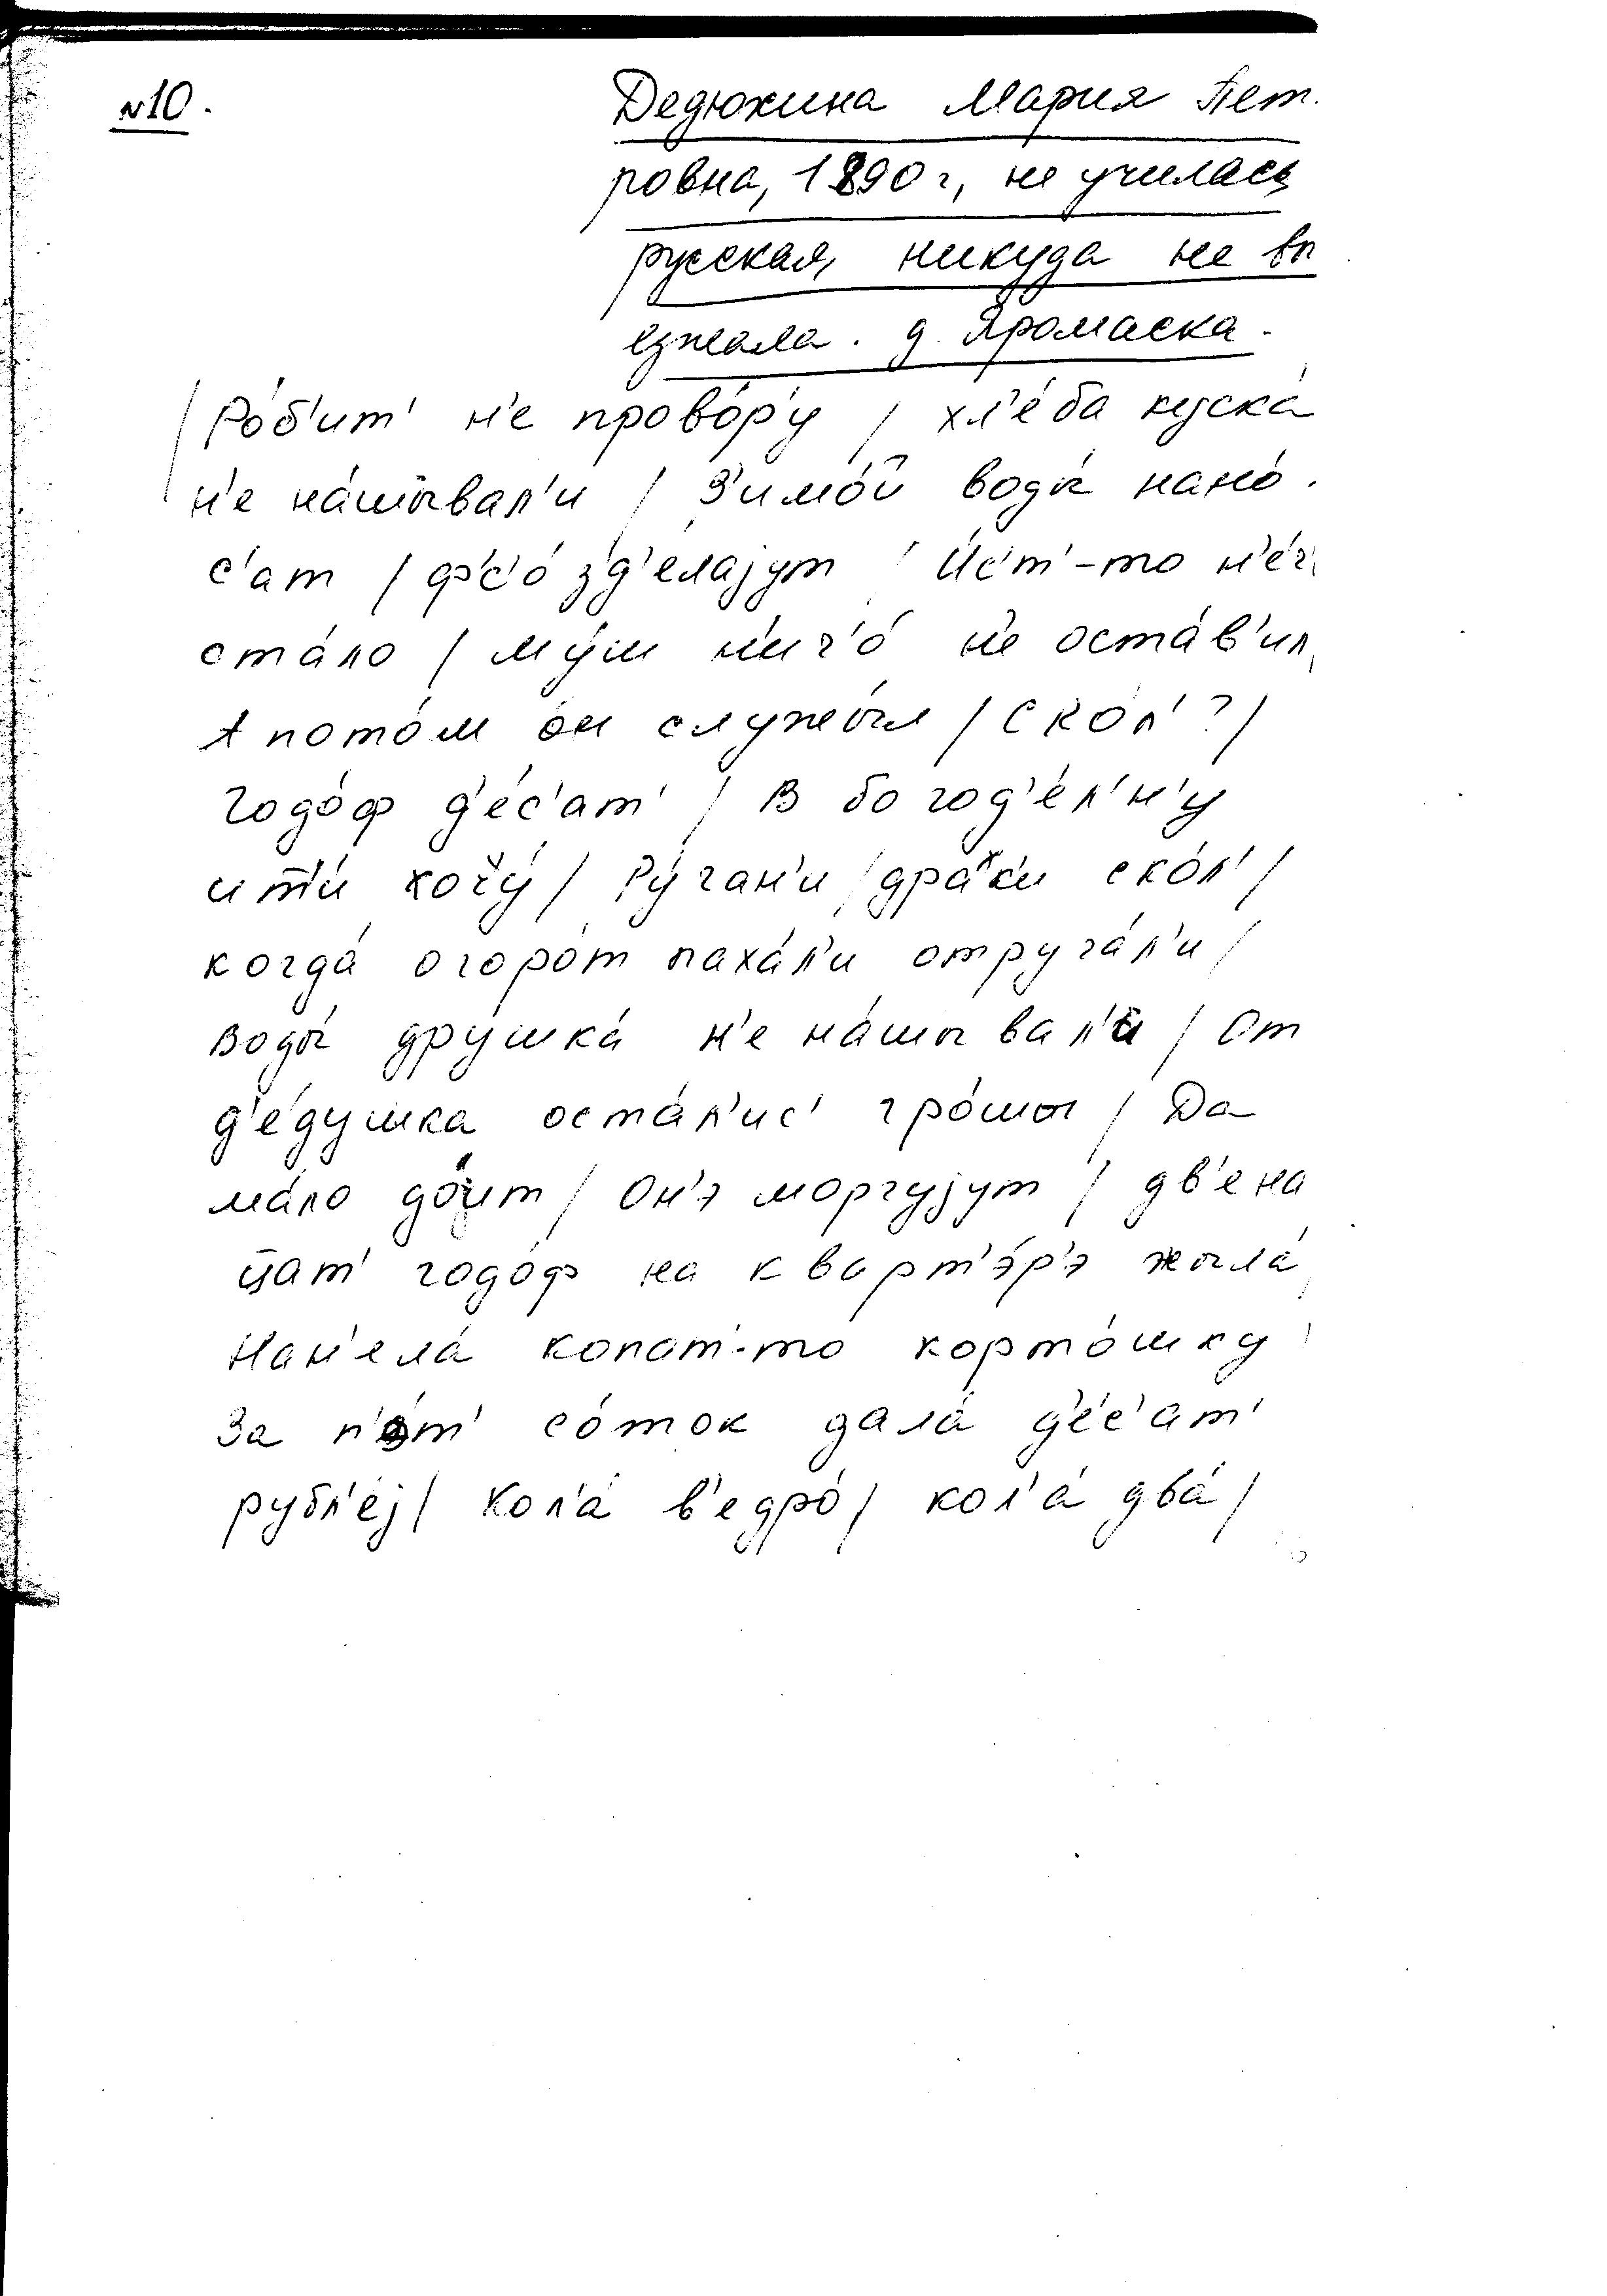 №10.
Дедюхина Мария Пет.
ровна, 1890 г, не училась
русская, никуда не вы
езжала. д. Яромаска.
/ Ро́б'ит' н'е прово́р'у / хл'е́ба куска́
н'е на́шывал'и / З'имо́й воды́ нано́.
с'ат / ф'с'о́ з'д'елаjут / И́с'т'-то н'е́ч'
ста́ло / му́ш н'ич'о́ н'е оста́в'ил
А пото́м о́н служы́л / Ско́л'? /
Годо́ф д'е́с'ат' / В богод'е́л'н'у
ит'и́ хочу́ / Ру́ган'и / дра́к'и ско́л' /
когда́ огоро́т паха́л'и отруга́л'и /
воды́ друшка́ н'е на́шывал'и / От
д'е́душка оста́л'ис' гро́шы / Да
ма́ло до́ит / Он'э моргуjут / дв'ена
цат' годо́ф на кварт'э́р'э жыла́
Нан'ела́ копат'-то корто́шку
За п'эт' со́ток дала́ д'е́с'ат'
рубл'е́j / Кол'а́ в'едро́ / кол'а́ два́ /